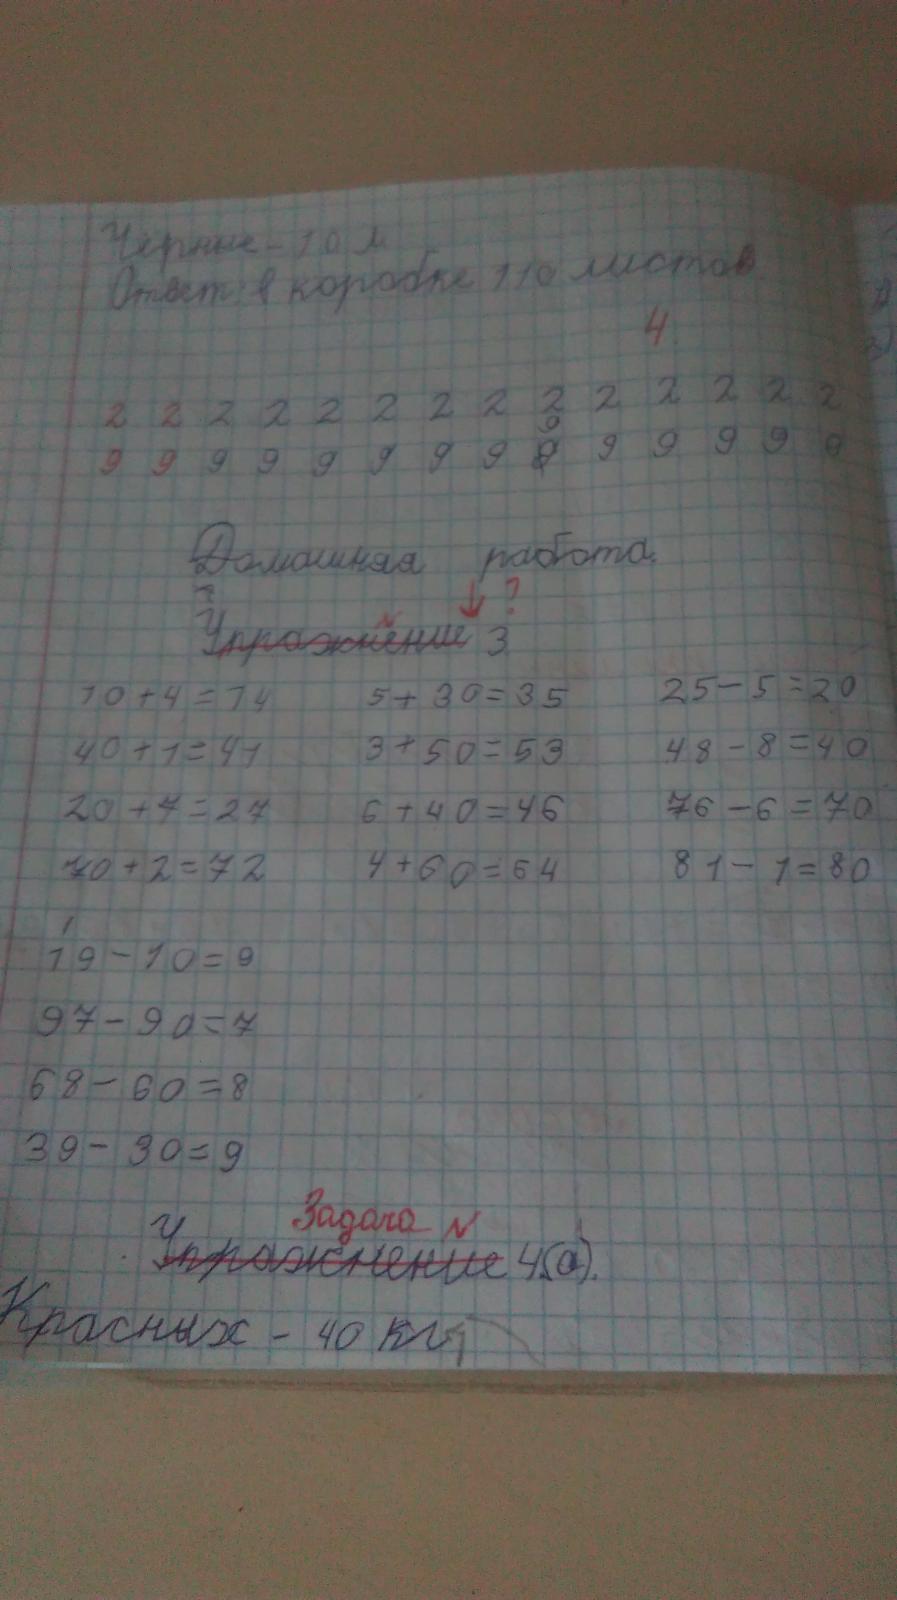 Чёрные - 10 л
Ответ: в коробке 110 листов
4
2 2 2 2 2 2 2 2 2 2 2 2 2 2
9 9 9 9 9 9 9 9 9 9 9 9 9 9
Домашняя работа.
?
Упражнение 3
10+4=14 5+30=35 25-5=20
40+1=41 3+50=53 48-8=40
20+7=27 6+40=46 76-6=70
70+2=72 4+60=64 81-1=80
19-10=9
97-90=7
68-60=8
39-30=9
Задача N
Упражнение 4(а).
Красных - 40 кг